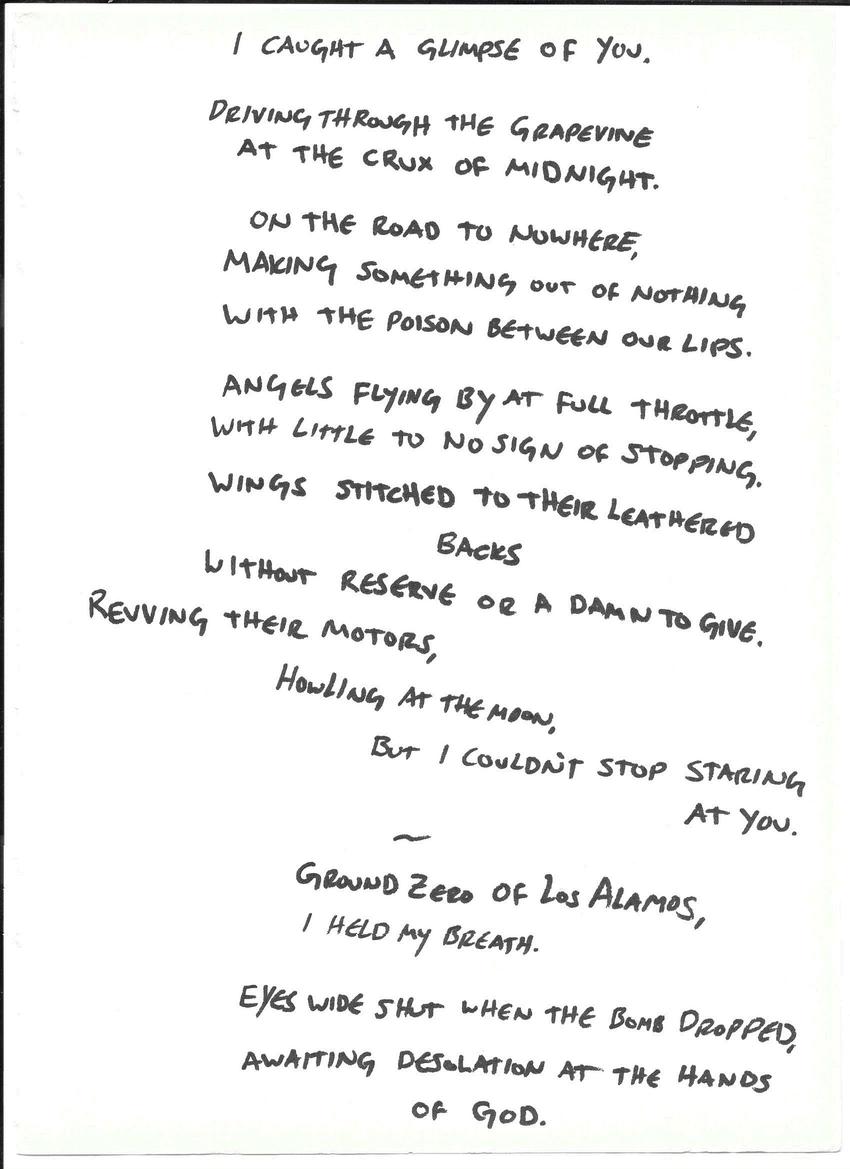 I CAUGHT A GLIMPSE OF YOU.
DRIVING THROUGH THE GRAPEVINE
AT THE CRUX OF MIDNIGHT.
ON THE ROAD TO NOWHERE,
MAKING SOMETHING OUT OF NOTHING
WITH THE POISON BETWEEN OUR LIPS.
ANGELS FLYING BY AT FULL THROTTLE,
WITH LITTLE TO NO SIGN OF STOPPING.
WINGS STITCHED TO THEIR LEATHERED
BACKS
WITHOUT RESERVE OR A DAMN TO GIVE.
REVVING THEIR MOTORS,
HOWLING AT THE MOON,
BUT I COULDN'T STOP STARING
AT YOU.
~
GROUND ZERO OF LOS ALAMOS,
I HELD MY BREATH.
EYES WIDE SHUT WHEN THE BOMB DROPPED,
AWAITING DESOLATION AT THE HANDS
OF GOD.